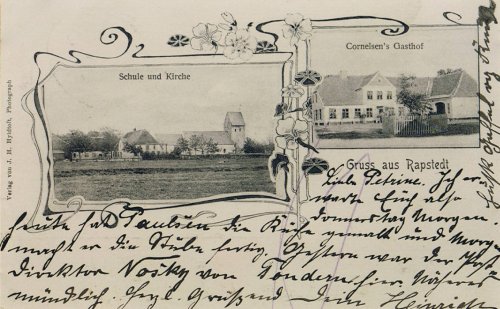 Schule und Kirche
Cornelsen's Gasthof
Gruss aus Rapstedt
Verlag von J. H. Photograph
Liebe Petrine. Ich er-
warte Euch also
Donnerstag Morgen
heute hat Paulsen die Küche gemalt und Morgen
macht er die Stube fertig. Gestern war der Post
direktor Nosky von Tondern hier. Näheres
mündlich. Herzl. Grüssend Dein Heinrich